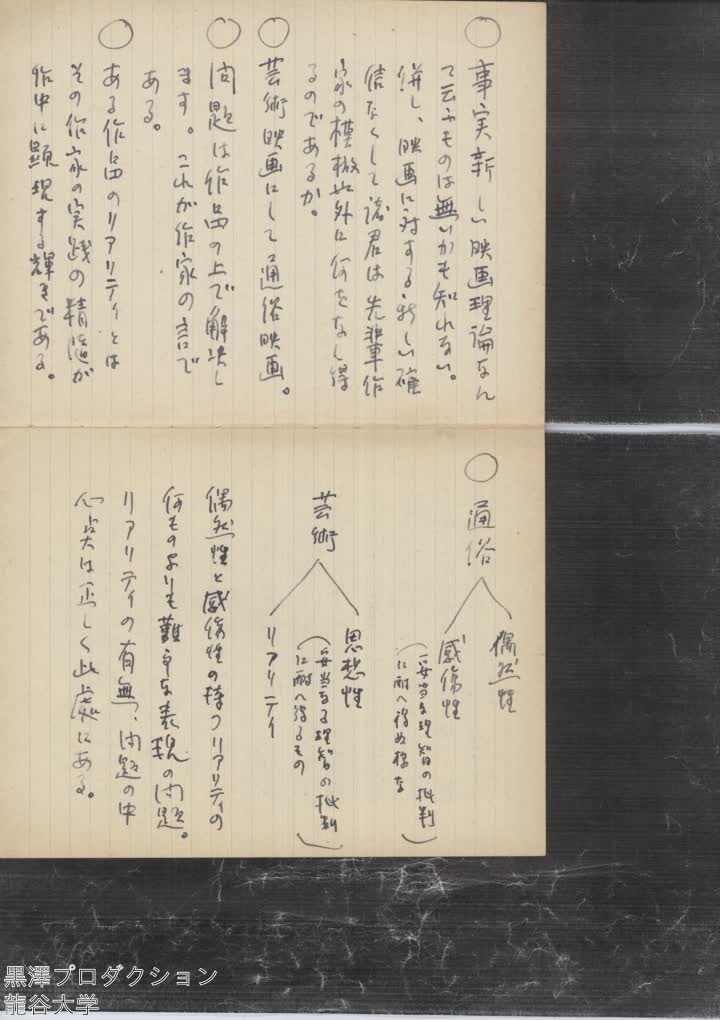 ○ 事実新しい映画理論なん
て云ふものは無いかも知れない。
併し、映画に対する新しい確
信なくして諸君は先輩作
家の模倣以外に何をなし得
るのであるか。
○ 芸術映画にして通俗映画。
○ 問題は作品の上で解決し
ます。これが作家の言で
ある。
○ ある作品のリアリティとは
その作家の実践の精随が
作中に顕現する輝きである。
○ 通俗
偶然性
感傷性
(妥当な理智の批判
に耐へ得ぬ様な)
芸術
思想性
(妥当なる理智の批判
に耐へ得るもの)
リアリティ
偶然性と感傷性の持つリアリティの
何ものよりも難しい表現の問題。
リアリティの有無、問題の中
心点は正しく此處にある。
黒澤プロダクション
龍谷大学